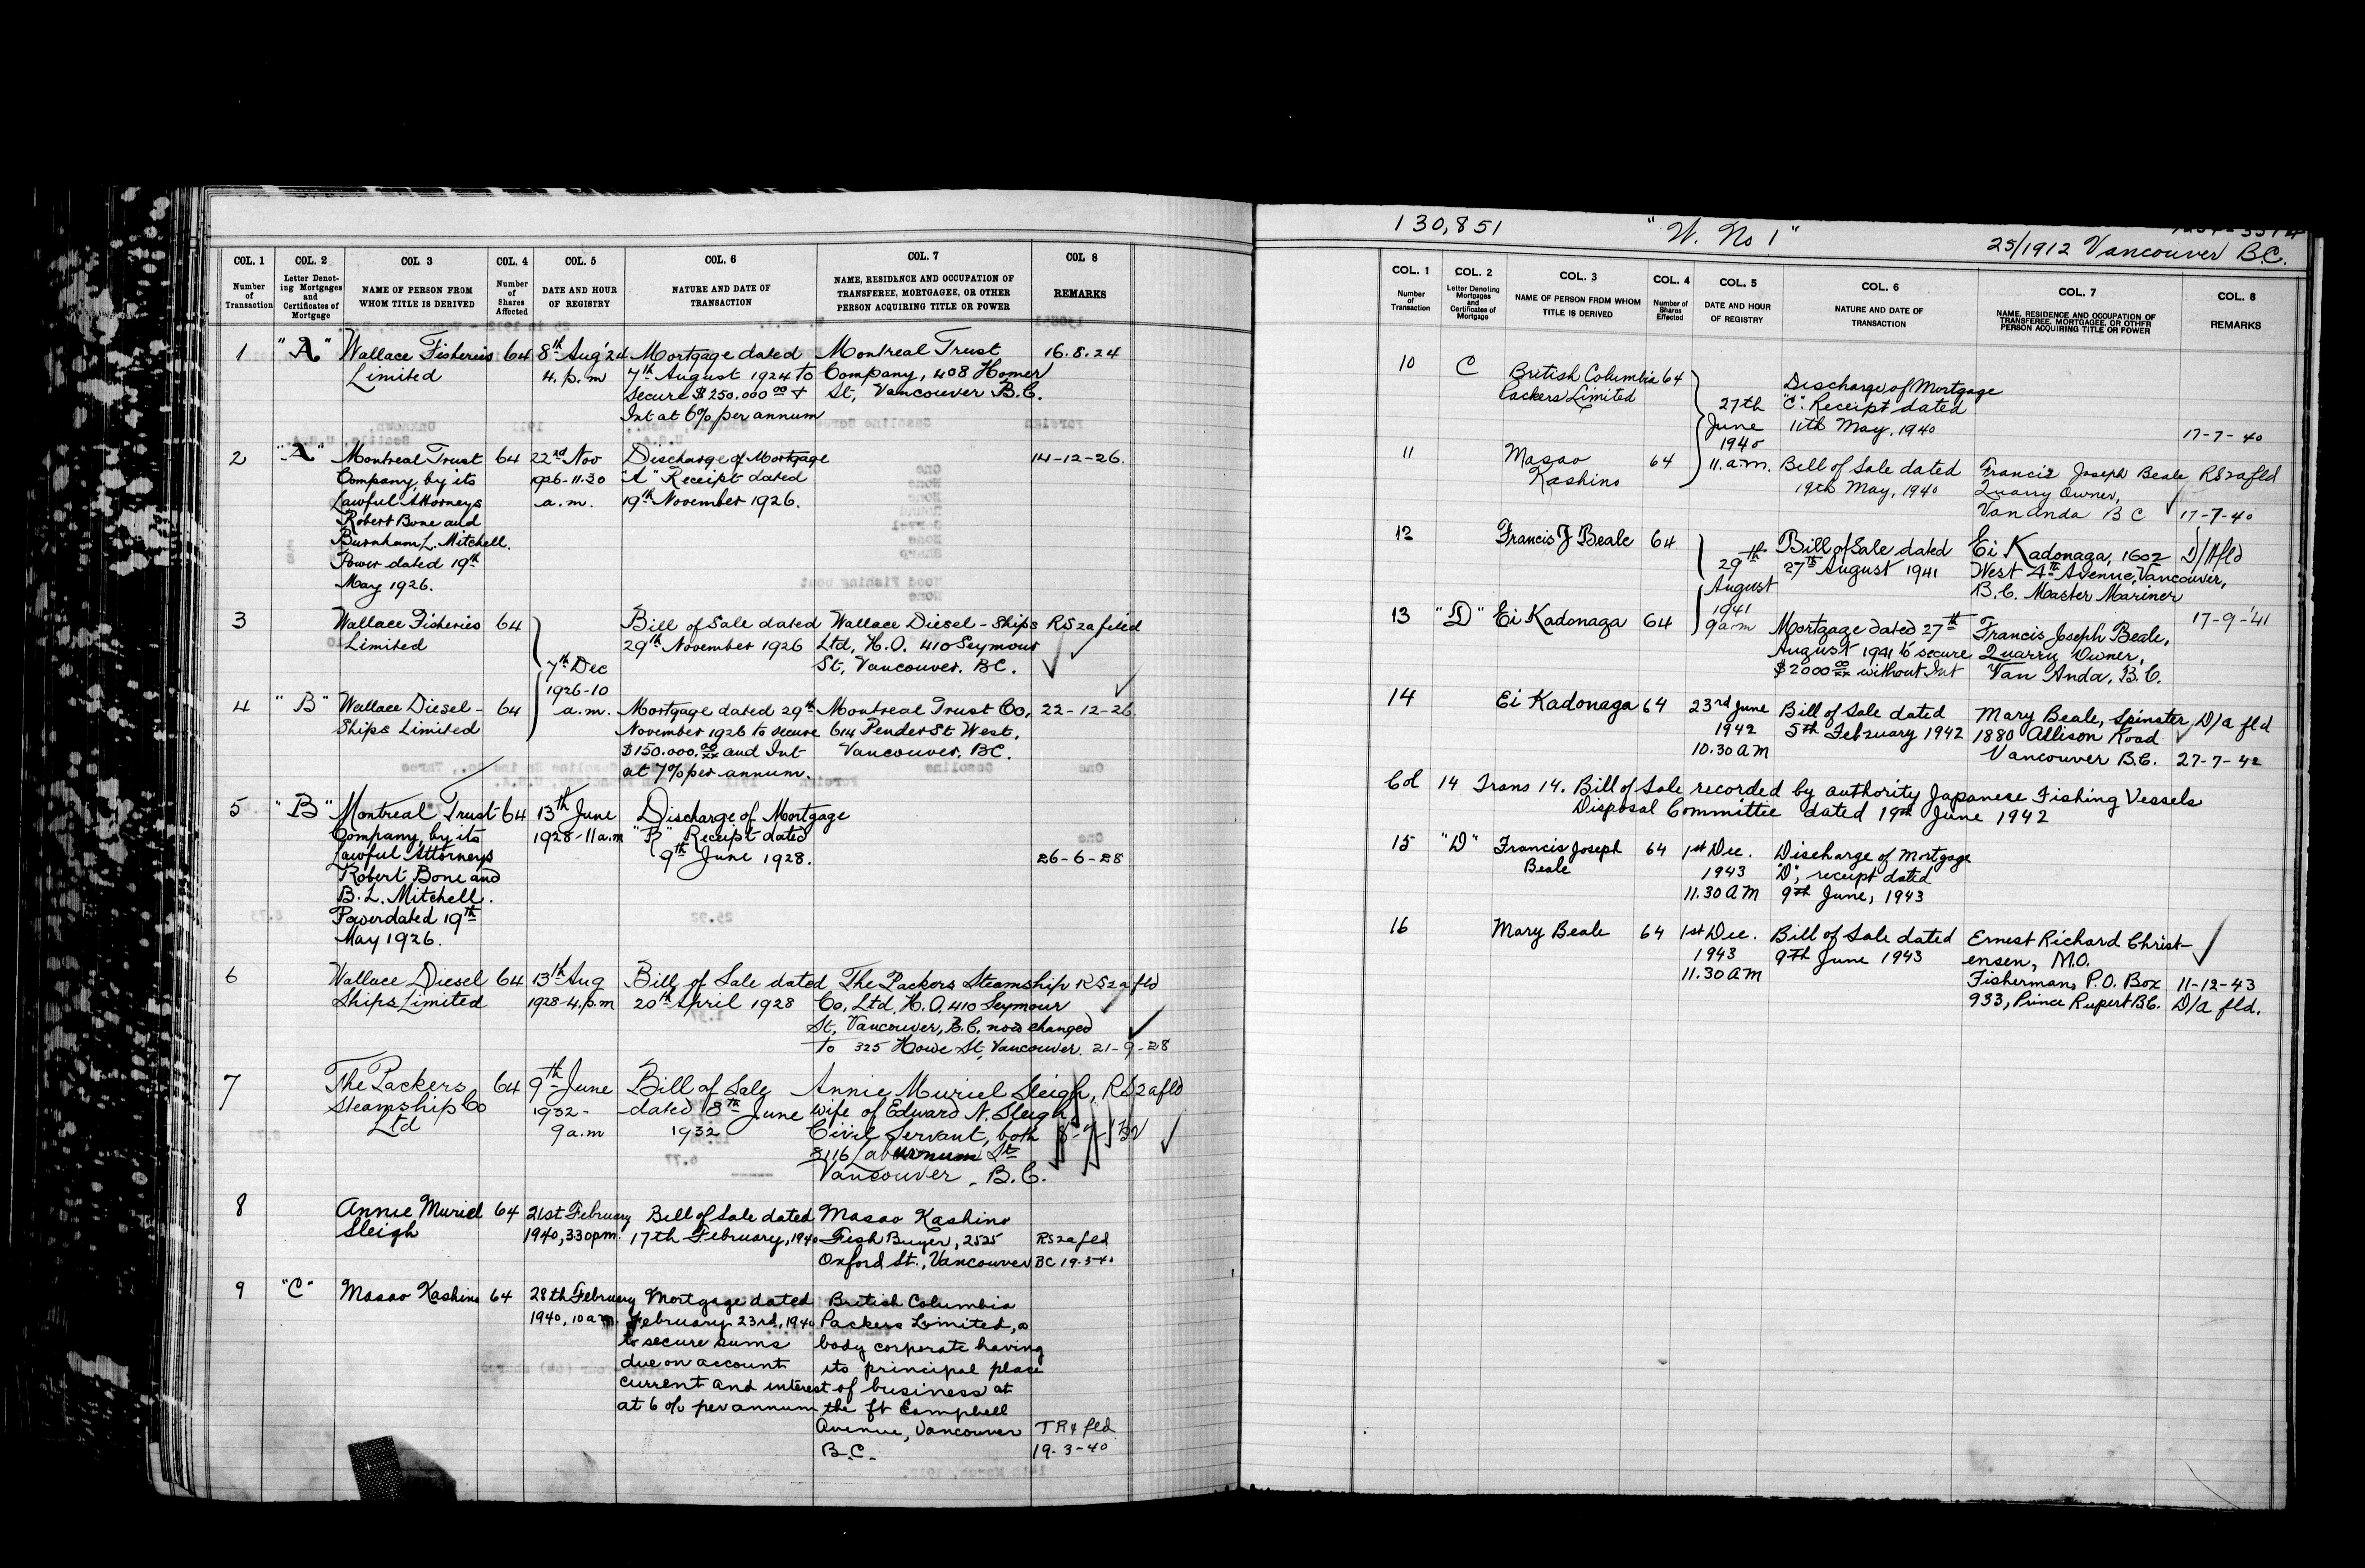 COL. 1 COL. 2 COL. 3 COL. 4 COL. 5 COL. 6 COL. 7 COL 8
Number of Transaction
Letter Denoting Mortgages and Certificates of Mortgage
NAME OF PERSON FROM WHOM TITLE IS DERIVED
Number of Shares Affected
DATE AND HOUR OF REGISTRY
NATURE AND DATE OF TRANSACTION
NAME, RESIDENCE AND OCCUPATION OF TRANSFEREE, MORTGAGEE, OR OTHER PERSON ACQUIRING TITLE OR POWER
REMARKS
1 "A" Wallace Fisheries 64 8th Aug '24 Mortgage dated Montreal Trust 16.8.24
Limited 4. p.m 7th August 1924 to Company, 408 Homer
secure $250.000 00 + St, Vancouver B.C.
Int at 6% per annum
2 "A" Montreal Trust 64 22nd Nov Discharge of Mortgage 14-12-26.
Company, by its 1926-11.30 "A" Receipt dated
Lawful Attorneys a.m. 19th November 1926.
Robert Bone and
Burnham L. Mitchell.
Power dated 19th
May 1926.
3 Wallace Fisheries 64 Bill of Sale dated Wallace Diesel-Ships RS2a filed
Limited 29th November 1926 Ltd, H.O. 410 Seymour
7th Dec St, Vancouver. BC.
1926-10
4 "B" Wallace Diesel- 64 a.m. Mortgage dated 29th Montreal Trust Co, 22-12-26.
Ships Limited November 1926 to secure 614 Pender St West.
$150.000.00 and Int Vancouver. BC.
at 7% per annum.
5 "B" Montreal Trust 64 13th June Discharge of Mortgage
Company, by its 1928-11 a.m "B" Receipt dated
Lawful Attorneys 9th June 1928. 26-6-28
Robert Bone and
B. L. Mitchell.
Power dated 19th
May 1926.
6 Wallace Diesel 64 13th Aug Bill of Sale dated The Packers Steamship RS2a fld
Ships Limited 1928-4.p.m 20th April 1928 Co, Ltd, H.O. 410 Seymour
St, Vancouver, B.C. now changed
to 325 Howe St, Vancouver. 21-9-28
7 The Packers 64 9th June Bill of Sale Annie Muriel Sleigh, RS2a fld
Steamship Co 1932- dated 8th June wife of Edward N. Sleigh,
Ltd 9 a.m 1932 Civil Servant, both
3116 Laburnum St
Vancouver, B.C.
8 Annie Muriel 64 21st February Bill of Sale dated Masao Kashino
Sleigh 1940, 330pm. 17th February, 1940 Fish Buyer, 2525 RS2a fld
Oxford St., Vancouver BC 19.3-40
9 "C" Masao Kashino 64 28th February Mortgage dated British Columbia
1940, 10 am. February 23rd, 1940 Packers Limited, a
to secure sums body corporate having
due on account its principal place
current and interest of business at
at 6% per annum the ft Campbell
Avenue, Vancouver TR4 fld
B.C. 19-3-40
130,851 "W. No 1"
25/1912 Vancouver B.C.
COL. 1 COL. 2 COL. 3 COL. 4 COL. 5 COL. 6 COL. 7 COL. 8
Number of Transaction
Letter Denoting Mortgages and Certificates of Mortgage
NAME OF PERSON FROM WHOM TITLE IS DERIVED
Number of Shares Effected
DATE AND HOUR OF REGISTRY
NATURE AND DATE OF TRANSACTION
NAME, RESIDENCE AND OCCUPATION OF TRANSFEREE, MORTGAGEE, OR OTHER PERSON ACQUIRING TITLE OR POWER
REMARKS
10 C British Columbia 64 Discharge of Mortgage
Packers Limited 27th "C". Receipt dated
June 11th May, 1940 17-7-40
1940
11 Masao 64 11. a.m. Bill of Sale dated Francis Joseph Beale RS2a fld
Kashino 19th May, 1940 Quarry Owner,
Van Anda B C 17-7-40
12 Francis J Beale 64 29th Bill of Sale dated Ei Kadonaga, 1602 D/A fld
August 27th August 1941 West 4th Avenue, Vancouver,
B.C. Master Mariner
1941 17-9-'41
13 "D" Ei Kadonaga 64 9 a.m Mortgage dated 27th Francis Joseph Beale,
August 1941 to secure Quarry Owner,
$2000 00/xx without Int Van Anda, B.C.
14 Ei Kadonaga 64 23rd June Bill of Sale dated Mary Beale, Spinster D/a fld
1942 5th February 1942 1880 Allison Road
10.30 AM Vancouver B.C. 27-7-42
Col 14 Trans 14. Bill of Sale recorded by authority Japanese Fishing Vessels
Disposal Committee dated 19th June 1942
15 "D" Francis Joseph 64 1st Dec. Discharge of Mortgage
Beale 1943 "D", receipt dated
11.30 AM 9th June, 1943
16 Mary Beale 64 1st Dec. Bill of Sale dated Ernest Richard Christ-
1943 9th June 1943 ensen, M.O.
11.30 AM Fisherman, P.O. Box 11-12-43
933, Prince Rupert B.C. D/a fld.